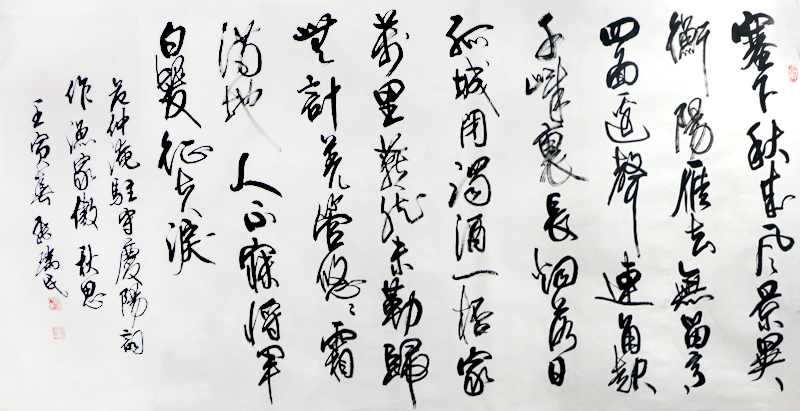 塞下秋来风景異
衡陽雁去無留意
四面邊聲連角起
千嶂裏長烟落日
孤城闭濁酒一杯家
萬里燕然未勒歸
無計羌管悠悠霜
满地人不寐将軍
白髮征夫淚
范仲淹駐守慶陽詞
作漁家傲秋思
壬寅春